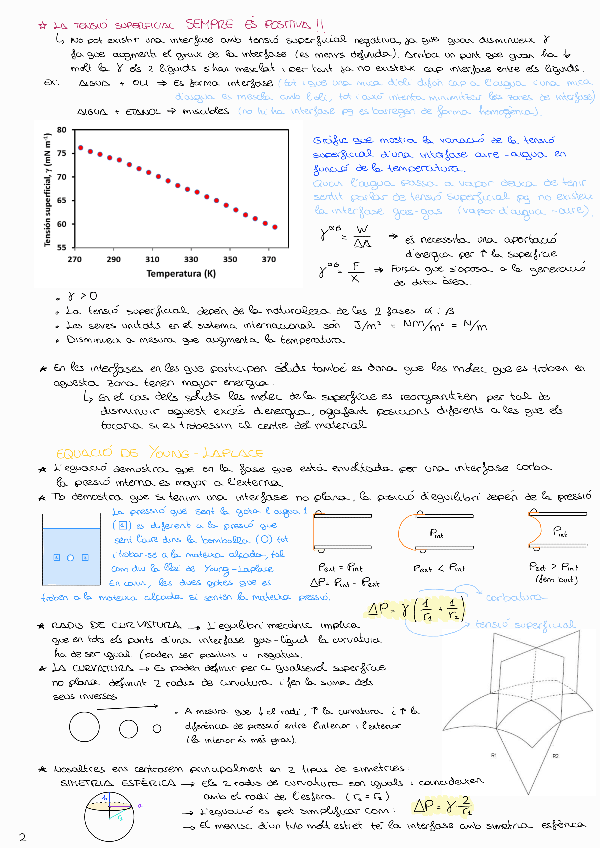 ☆ LA TENSIÓ SUPERFICIAL SEMPRE ÉS POSITIVA !!
↳ No pot existir una interfase amb tensió superficial negativa, ja que quan disminueix γ
fa que augmenti el gruix de la interfase (és menys definida). Arriba un punt que quan ha ↓
molt la γ els 2 líquids s'han mesclat i per tant ja no existeix cap interfase entre els líquids.
EX: AIGUA + OLI → Es forma interfase (tot i que una mica d'oli difon cap a l'aigua i una mica
d'aigua es mescla amb l'oli, tot i així intenta minimitzar les zones de interfase)
AIGUA + ETANOL → miscibles (no hi ha interfase pq es barregen de forma homogènia).
Tensión superficial, γ (mN m⁻¹)
80
75
70
65
60
55
270 290 310 330 350 370
Temperatura (K)
Gràfic que mostra la variació de la tensió
superficial d'una interfase aire-aigua en
funció de la temperatura.
Quan l'aigua passa a vapor deixa de tenir
sentit parlar de tensió superficial pq no existeix
la interfase gas-gas (vapor d'aigua-aire).
γ^αβ = W/ΔA → es necessita una aportació
d'energia per ↑ la superfície
γ^αβ = F/X → Força que s'oposa a la generació
de dita àrea.
• γ > 0
• La tensió superficial depèn de la naturalesa de les 2 fases α i β
• Les seves unitats en el sistema internacional són J/m² = Nm/m² = N/m
• Disminueix a mesura que augmenta la temperatura
★ En les interfases en les que participen sòlids també es dona que les molec. que es troben en
aquesta zona tenen major energia.
↳ En el cas dels sòlids les molec de la superfície es reorganitzen per tal de
disminuir aquest excés d'energia, agafant posicions diferents a les que els
tocaria si es trobessin al centre del material
EQUACIÓ DE YOUNG-LAPLACE
★ L'equació demostra que en la fase que està envoltada per una interfase corba
la pressió interna és major a l'externa.
★ Tb demostra que si tenim una interfase no plana, la posició d'equilibri depèn de la pressió
La pressió que sent la gota d'aigua 1
es diferent a la pressió que
sent l'aire dins la bombolla (O) tot
i trobar-se a la mateixa alçada, tal
com diu la llei de Young-Laplace.
En canvi, les dues gotes que es
troben a la mateixa alçada si senten la mateixa pressió.
Pext = Pint
ΔP = Pint - Pext
Pint
Pext < Pint
Pint
Pext > Pint
ΔP = γ (1/r1 + 1/r2)
curbatura
tensió superficial
★ RADIS DE CURVATURA → L'equilibri mecànic implica
que en tots els punts d'una interfase gas-líquid la curvatura
ha de ser igual (poden ser positius o negatius.
★ LA CURVATURA → Es poden definir per a qualsevol superfície
no plana definint 2 radis de curvatura i fen la suma dels
seus inversos
• A mesura que ↓ el radi, ↑ la curvatura i ↑ la
diferència de pressió entre l'interior i l'exterior
(la interior és més gran).
R1
R2
★ Nosaltres ens centrarem principalment en 2 tipus de simetries:
SIMETRIA ESFÈRICA → Els 2 radis de curvatura son iguals i coincideixen
amb el radi de l'esfera (r1 = r2)
→ L'equació es pot simplificar com: ΔP = γ · 2/r1
→ El menisc d'un tub molt estret té la interfase amb simetria esfèrica
2